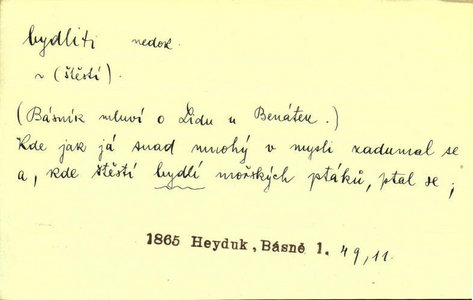 bydliti nedok.
~ (štěstí).
(Básník mluví o Lidu u Benátek.)
Kde jak já snad mnohý v mysli zadumal se
a, kde štěstí bydlí mořských ptáků, ptal se;
1865 Heyduk, Básně 1. 49,11.